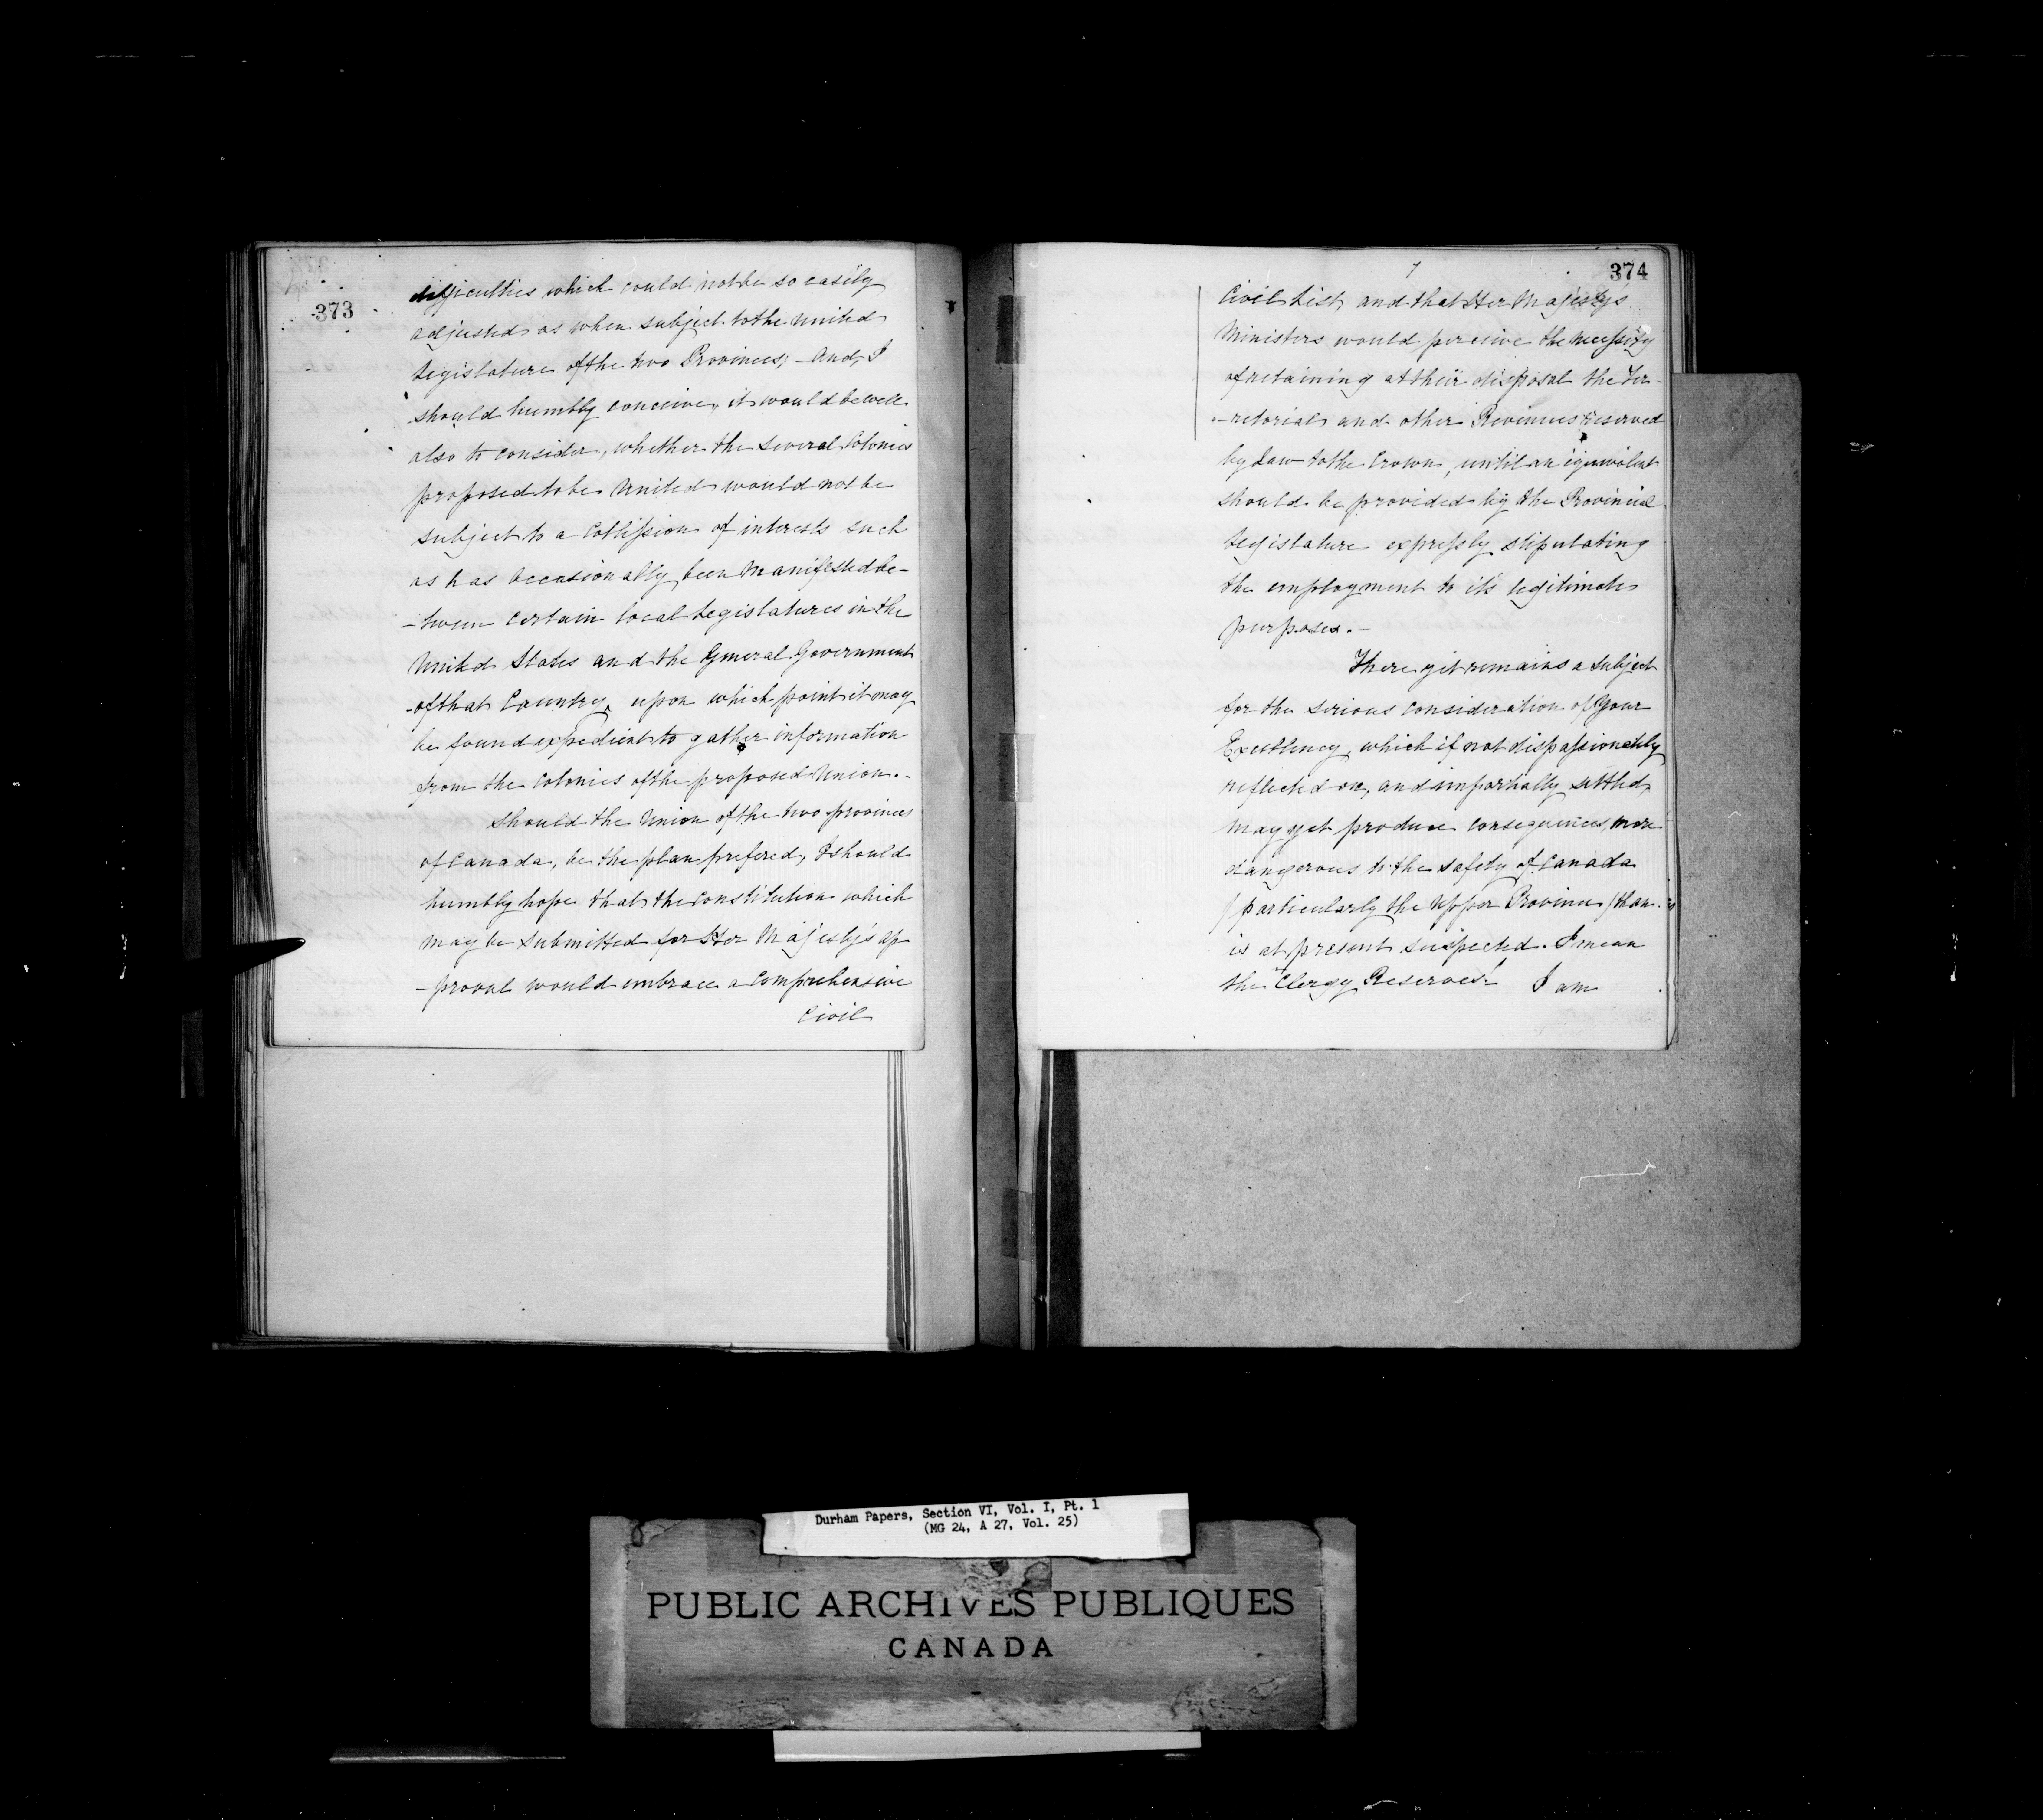 373
difficulties which could not be so easily
adjusted as when subject to the United
Legislature of the two Provinces; - And, I
should humbly conceive, it would be well
also to consider, whether the several Colonies
proposed to be United would not be
subject to a Collission of interests such
as has occasionally been Manifested be-
-tween certain local Legislatures in the
United States and the General Government
of that Country, upon which point it may
be found expedient to gather information
from the Colonies of the proposed Union. -
Should the Union of the two provinces
of Canada, be the plan prefered, I should
humbly hope that the Constitution which
may be submitted for Her Majesty's ap
-proval would embrace a Comprehensive
Civil
7
374
Civil List, and that Her Majesty's
Ministers would perceive the necessity
of retaining at their disposal the Ter-
-retorial and other Revenues reserved
by Law to the Crown, until an equivalent
should be provided by the Provincial
Legislature expressly stipulating
the employment to it's legitimate
purposes. -
There yet remains a subject
for the serious consideration of Your
Excellency, which if not dispassionately
reflected on, and impartially settled,
may yet produce consequences, more
dangerous to the safety of Canada
(particularly the Upper Province) than
is at present suspected. I mean
the "Clergy Reserves."  I am
Durham Papers, Section VI, Vol. I, Pt. 1
(MG 24, A 27, Vol. 25)
PUBLIC ARCHIVES PUBLIQUES
CANADA